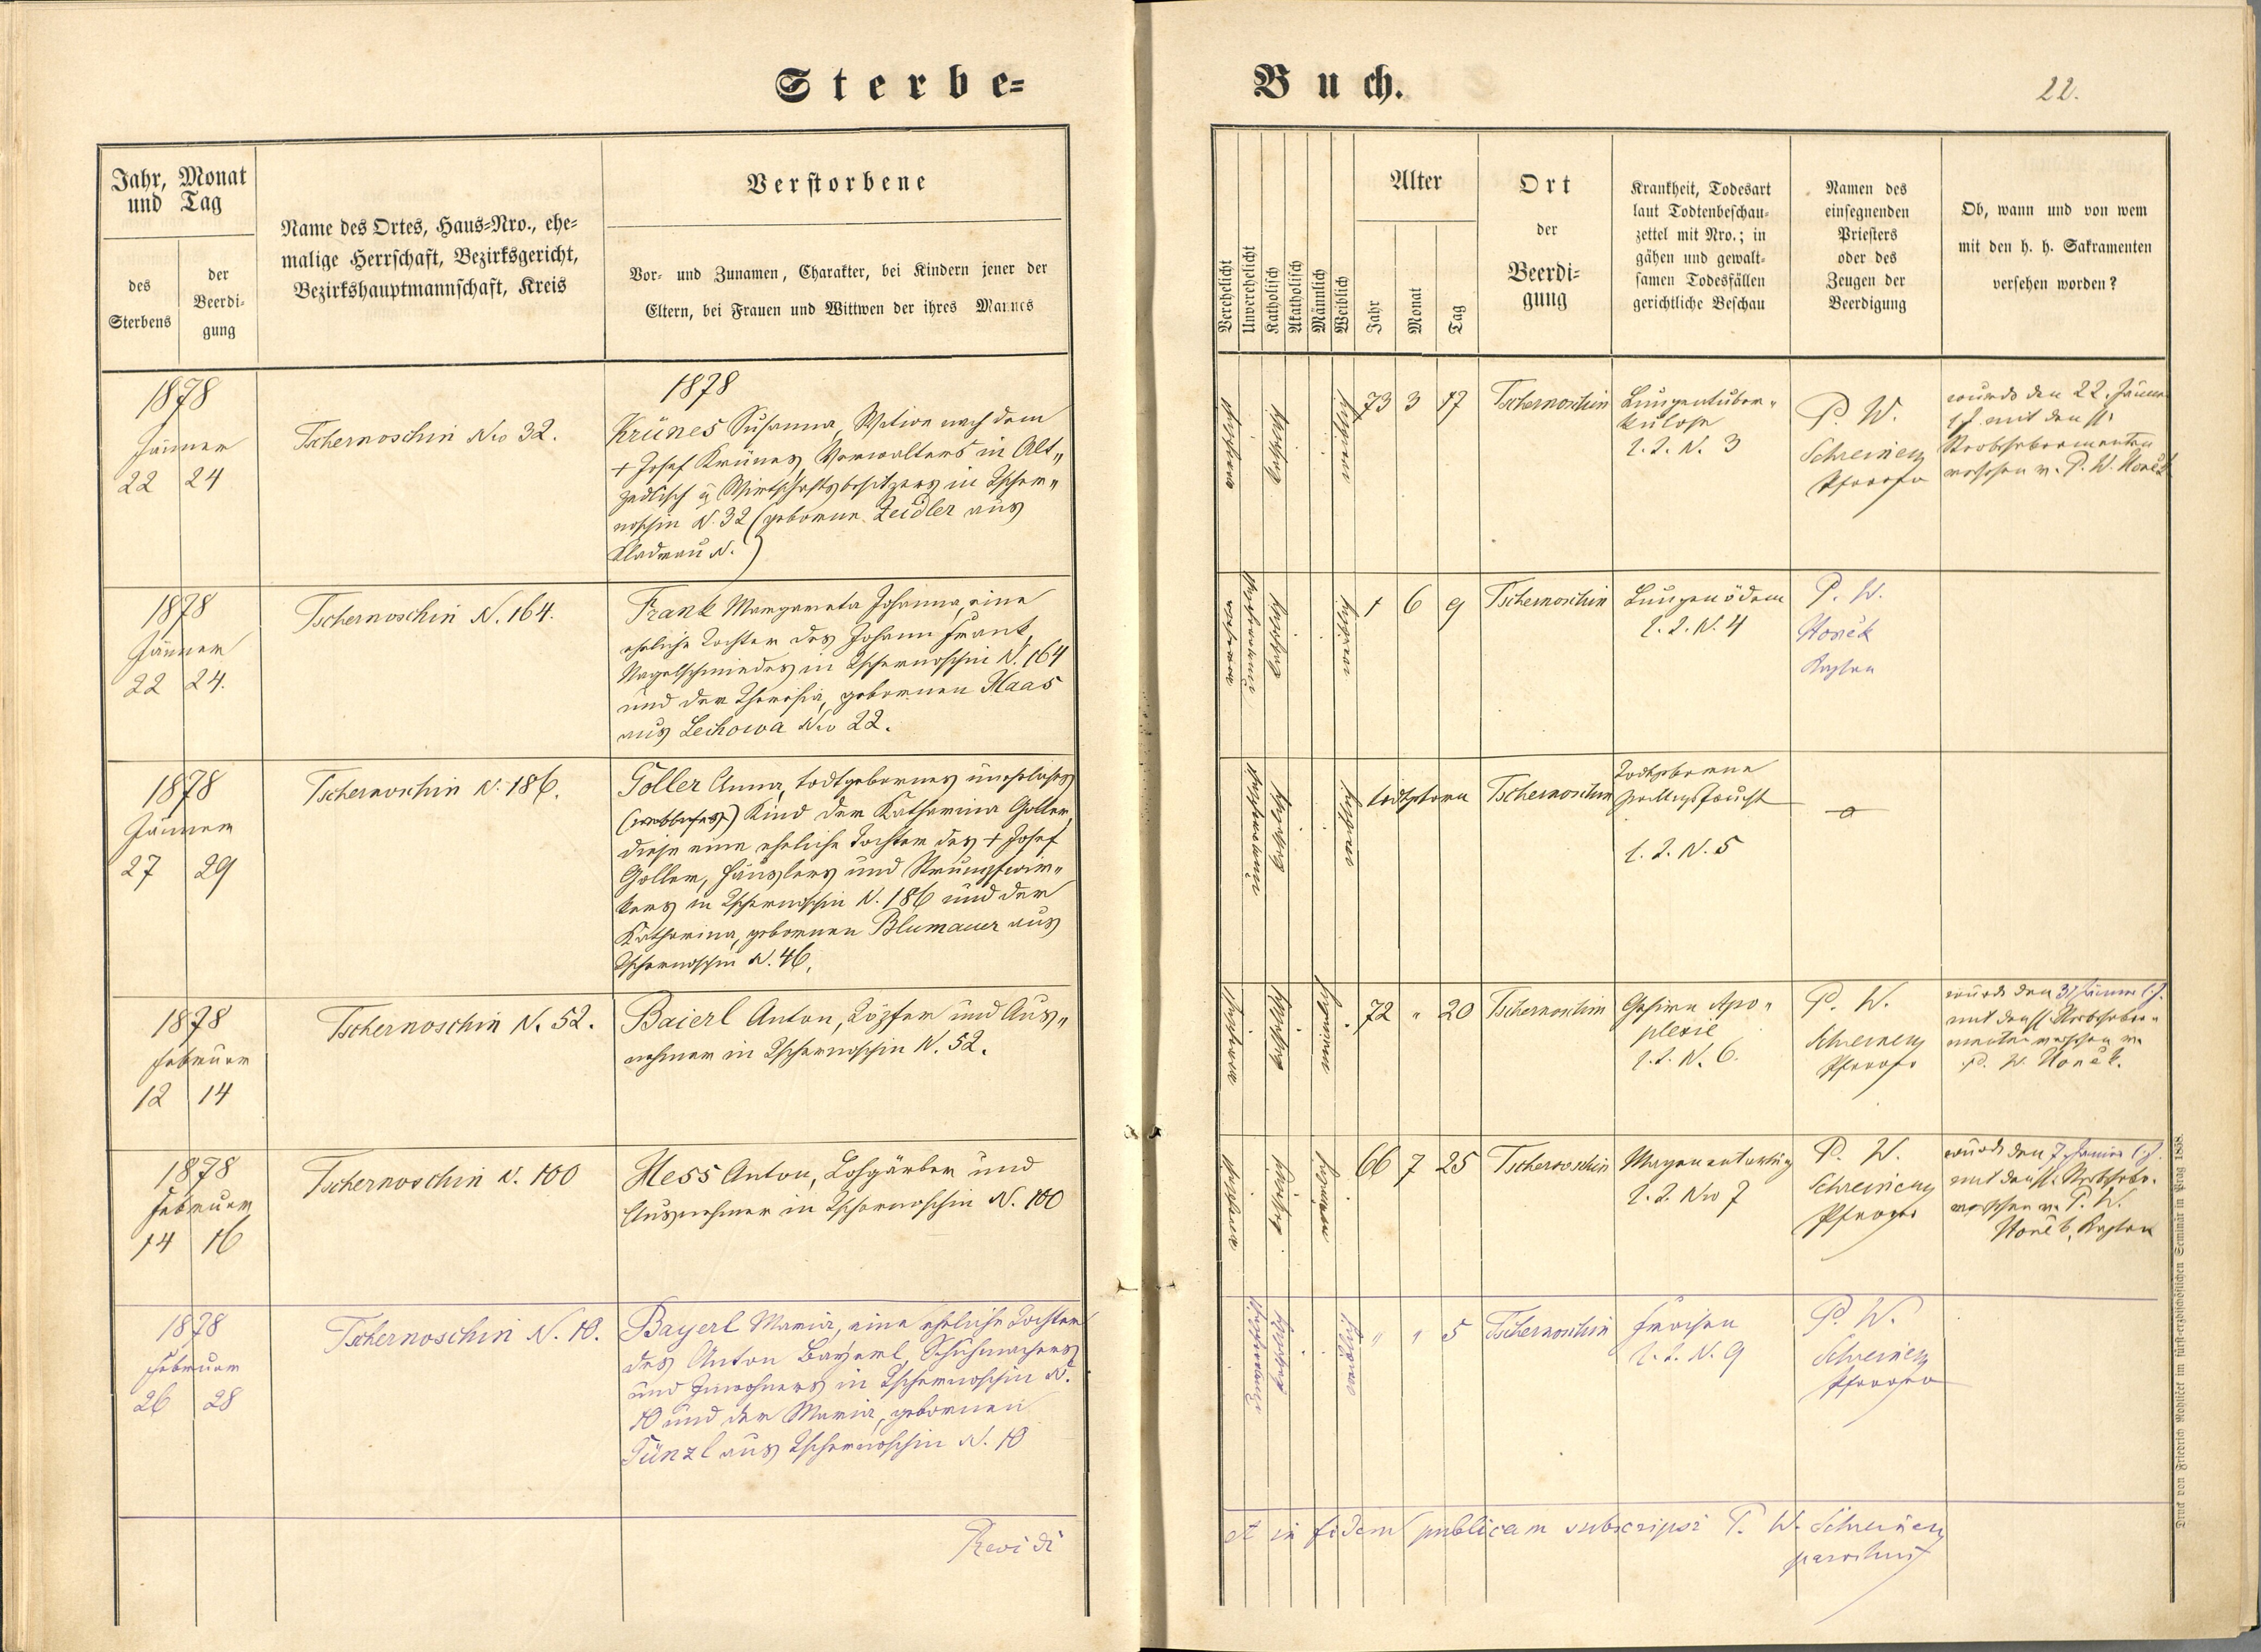 Sterbe=
Buch.
22.
Jahr, Monat
und Tag
des
Sterbens
der
Beerdi-
gung
Name des Ortes, Haus-Nro., ehe-
malige Herrschaft, Bezirksgericht,
Bezirkshauptmannschaft, Kreis
Verstorbene
Vor- und Zunamen, Charakter, bei Kindern jener der
Eltern, bei Frauen und Wittwen der ihres Mannes
Verehelicht
Unverehelicht
Katholisch
Akatholisch
Männlich
Weiblich
Alter
Jahr
Monat
Tag
Ort
der
Beerdi-
gung
Krankheit, Todesart
laut Todtenbeschau-
zettel mit Nro.; in
gähen und gewalt-
samen Todesfällen
gerichtliche Beschau
Namen des
einsegnenden
Priesters
oder des
Zeugen der
Beerdigung
Ob, wann und von wem
mit den h. h. Sakramenten
versehen worden?
1878
Jänner
22 24
Tschernoschin Nro 32.
1878
Krünes Susanna, Witwe nach dem
+ Josef Krünes, Verwalters in Alt„
zedlisch u Wirtschaftsbesitzers in Tscher„
noschin N. 32 (geborene Zeidler aus
Kladrau N. )
verehelicht
katholisch
weiblich
73 3 17
Tschernoschin
Lungentuber„
kulose
l. Z. N. 3
P. W.
Schreiner
Pfarrer
wurde den 22. Jänner
l J mit den hl.
Sterbsakramenten
versehen v. P. W. Honěk
1878
Jänner
22 24.
Tschernoschin N. 164.
Frank Margareta Johanna, eine
eheliche Tochter des Johann Frank,
Nagelschmiedes in Tschernoschin N. 164
und der Theresia, gebornen Haas
aus Lechowa Nro 22.
katholisch
weiblich
1 6 9
Tschernoschin
Lungenödem
l. Z. N. 4
P. W.
Honěk
Kaplan
1878
Jänner
27 29
Tschernoschin N. 186.
Goller Anna, todtgebornes uneheliches
Kind der Katharina Goller,
diese eine eheliche Tochter des + Josef
Goller, Häuslers und Strumpfwir„
kers in Tschernoschin N. 186 und der
Katharina, gebornen Blumauer aus
Tschernoschin N. 46.
unverehelicht
katholisch
weiblich
todtgeboren
Tschernoschin
Todtgeborene
l. Z. N. 5
1878
Februar
12 14
Tschernoschin N. 52.
Baierl Anton, Töpfer und Aus„
nehmer in Tschernoschin N. 52.
verehelicht
katholisch
männlich
72 „ 20
Tschernoschin
Gehirn Apo„
plexie
l. Z. N. 6.
P. W.
Schreiner
Pfarrer
wurde den 31 Jänner l. J.
mit den hl. Sterbsakra„
menten versehen v.
P. W. Honěk.
1878
Februar
14 16
Tschernoschin N. 100
Hess Anton, Lohgärber und
Ausnehmer in Tschernoschin N. 100
verehelicht
katholisch
männlich
66 7 25
Tschernoschin
Magenentartung
l. Z. Nro 7
P. W.
Schreiner
Pfarrer
wurde den 7. l. J.
mit den hl. Sterbsakr.
versehen v. P. W.
Honěk, Kaplan
1878
Februar
26 28
Tschernoschin N. 10.
Bayerl Maria, eine eheliche Tochter
des Anton Bayerl, Schuhmachers
und Inwohners in Tschernoschin N.
10 und der Maria, gebornen
Günzl aus Tschernoschin N. 10
unverehelicht
katholisch
weiblich
„ „ 5
Tschernoschin
Fraisen
l. Z. N. 9
P. W.
Schreiner
Pfarrer
Revidi
et in fidem publicam subscripsi P. W. Schreiner
parochus
Druck von Friedrich Rohliček im fürst-erzbischöflichen Seminär in Prag 1858.